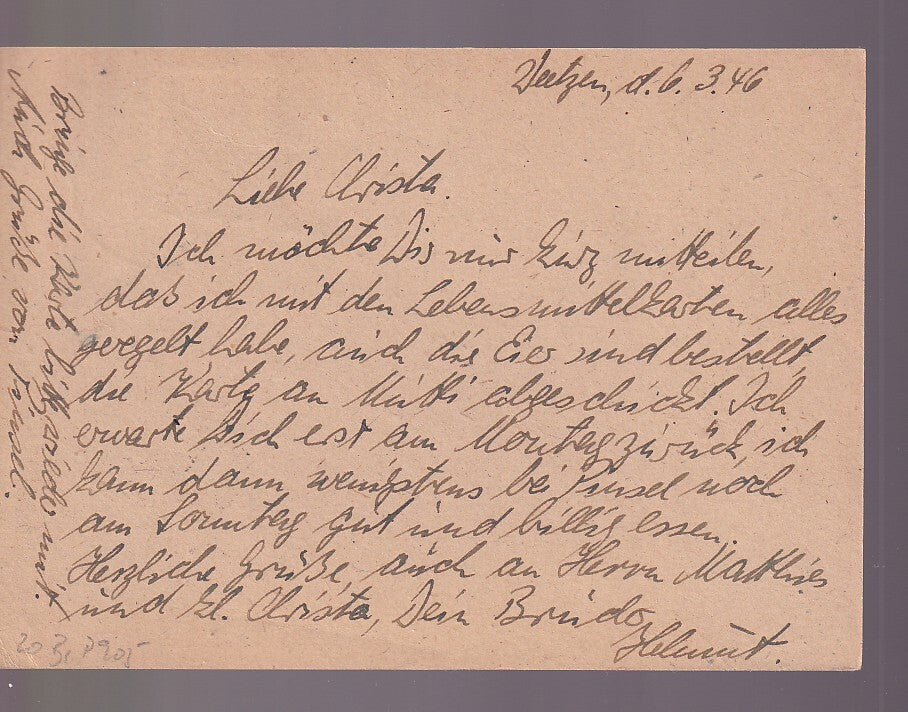 d. 6.3.46
Liebe Christa.
Ich möchte Dir nur kurz mitteilen,
das ich mit den Lebensmittelkarten alles
geregelt habe, auch die Eier sind bestellt,
die Karte an Mutti abgeschickt. Ich
erwarte Dich erst am Montag zurück, ich
kann dann wenigstens bei Pinsel noch
am Sonntag gut und billig essen.
Herzliche Grüße, auch an Herrn Matthies
und kl. Christa, Dein Bruder
Helmut.
Bringe die Karte bitte wieder mit.
Auch Grüße von Pinsel.